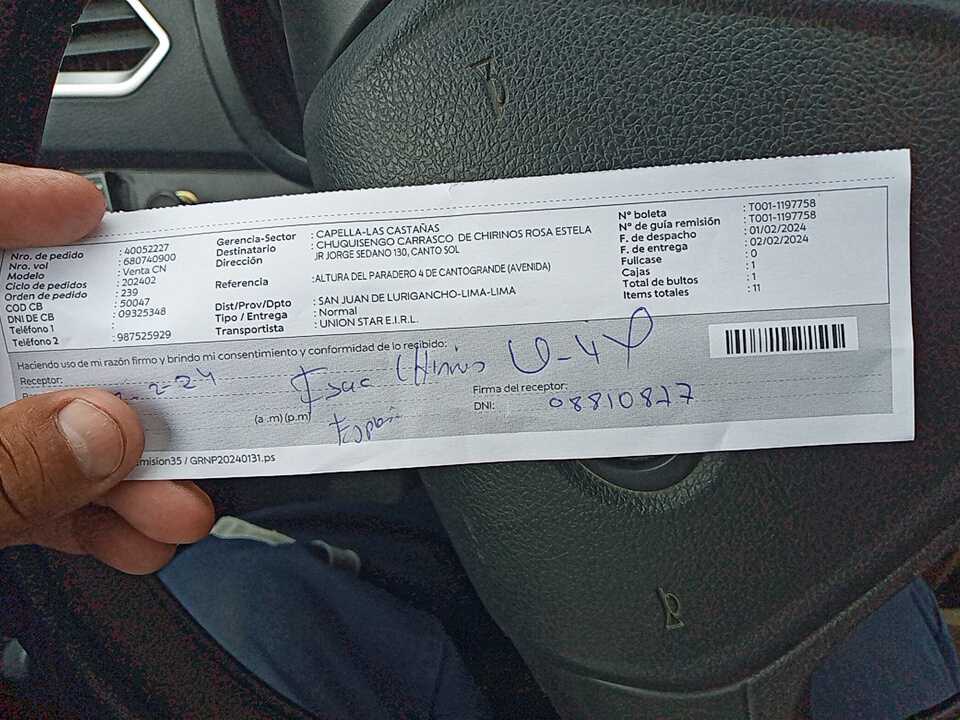 Nro. de pedido : 40052227
Nro. vol : 680740900
Modelo : Venta CN
Ciclo de pedidos : 202402
Orden de pedido : 239
COD CB : 50047
DNI DE CB : 09325348
Teléfono 1 :
Teléfono 2 : 987525929
Gerencia-Sector : CAPELLA-LAS CASTAÑAS
Destinatario : CHUQUISENGO CARRASCO DE CHIRINOS ROSA ESTELA
Dirección JR JORGE SEDANO 130, CANTO SOL
Referencia :ALTURA DEL PARADERO 4 DE CANTOGRANDE (AVENIDA)
Dist/Prov/Dpto : SAN JUAN DE LURIGANCHO-LIMA-LIMA
Tipo / Entrega : Normal
Transportista : UNION STAR E.I.R.L.
N° boleta : T001-1197758
N° de guía remisión : T001-1197758
F. de despacho : 01/02/2024
F. de entrega : 02/02/2024
Fullcase : 0
Cajas : 1
Total de bultos : 1
Items totales : 11
Haciendo uso de mi razón firmo y brindo mi consentimiento y conformidad de lo recibido:
Receptor: Isac Chirinos
2-24
(a .m) (p.m)
Firma del receptor:
DNI: 08810827
mision35 / GRNP20240131.ps